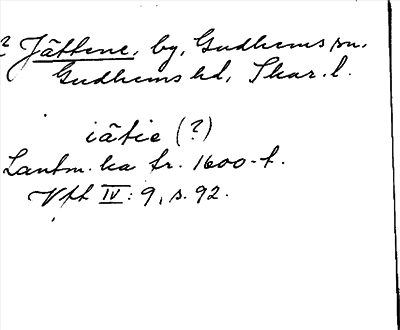 ? Jättene, by, Gudhems sn,
Gudhems hd, Skar. l.
iätie (?)
Lantm. ka fr. 1600-t.
Vft IV: 9, s. 92.